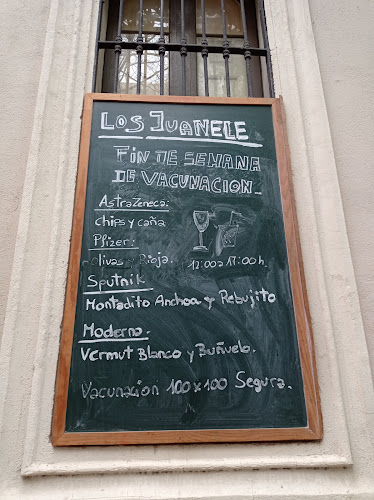 LOS JUANELE
FIN DE SEMANA
DE VACUNACION
AstraZeneca:
chips y caña
Pfizer:
olivas y Rioja.
12:00 a 17:00 h
Sputnik.
Montadito Anchoa y Rebujito
Moderna.
Vermut Blanco y Buñuelo.
Vacunacion 100x100 Segura.